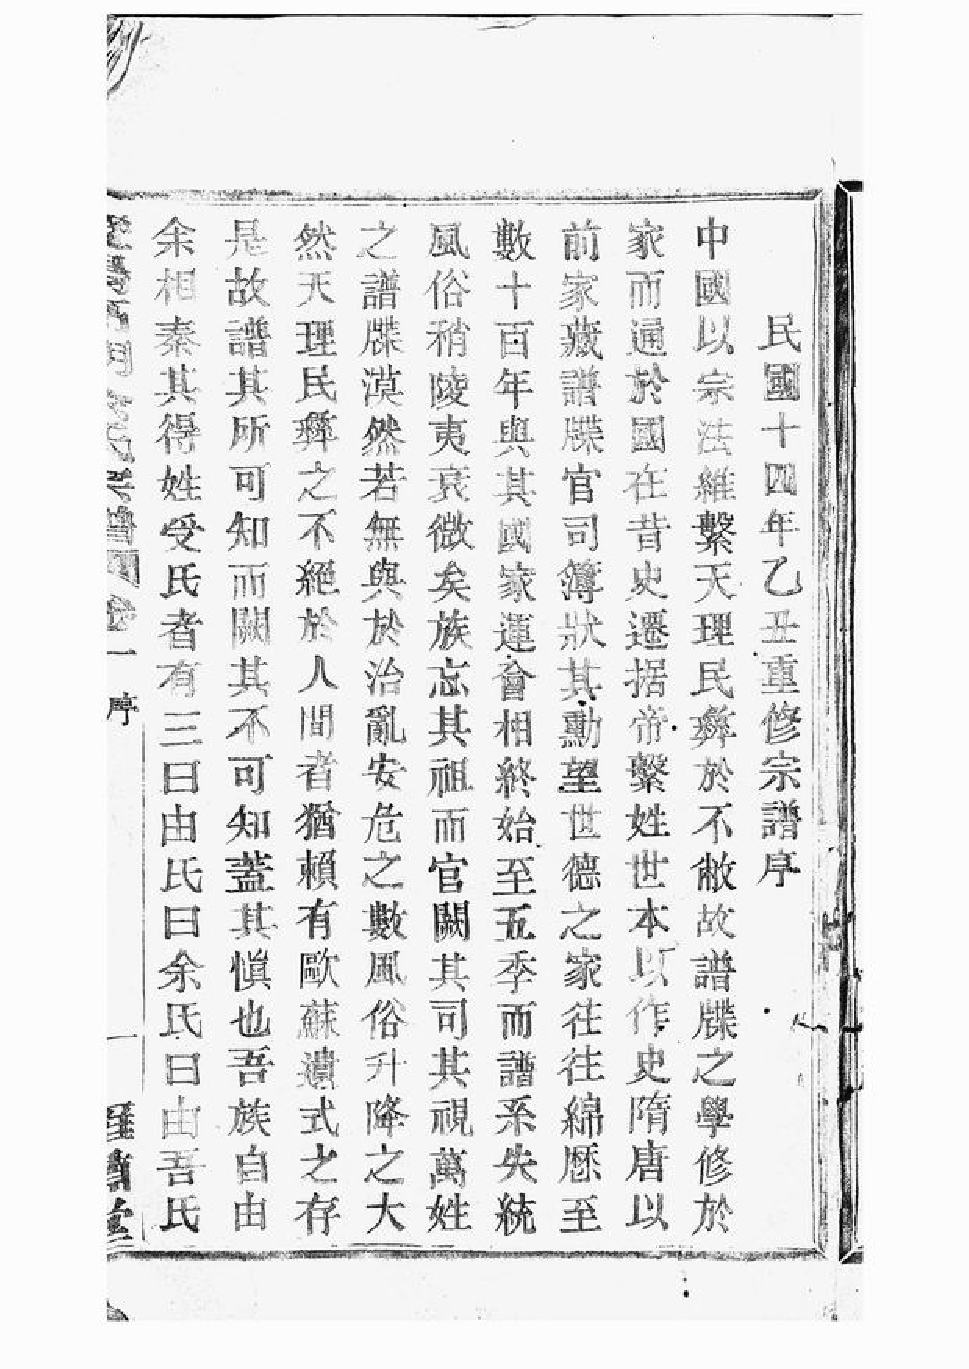 民國十四年乙丑重修宗譜序
中國以宗法維繫天理民彝於不敝故譜牒之學修於
家而通於國在昔史遷据帝繫姓世本以作史隋唐以
前家藏譜牒官司簿狀其勳望世德之家往往綿歷至
數十百年與其國家運會相終始至五季而譜系失統
風俗稍陵夷衰微矣族忘其祖而官闕其司其視萬姓
之譜牒漠然若無與於治亂安危之數風俗升降之大
然天理民彝之不絕於人間者猶賴有歐蘇遺式之存
是故譜其所可知而闕其不可知蓋其愼也吾族自由
余相秦其得姓受氏者有三曰由氏曰余氏曰由吾氏
卷一 序 一